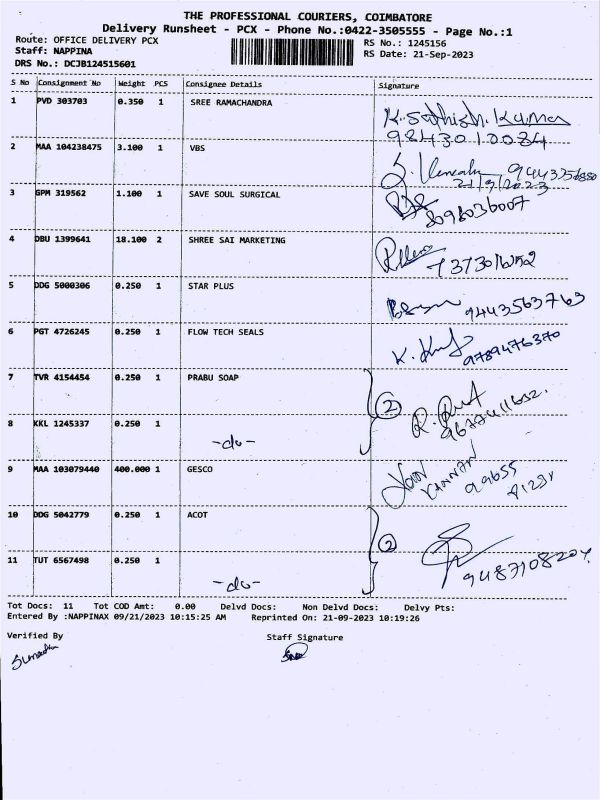 THE PROFESSIONAL COURIERS, COIMBATORE
Delivery Runsheet - PCX - Phone No.:0422-3505555 - Page No.:1
Route: OFFICE DELIVERY PCX RS No.: 1245156
Staff: NAPPINA RS Date: 21-Sep-2023
DRS No.: DCJB124515601
S No Consignment No Weight PCS Consignee Details Signature
1 PVD 303703 0.350 1 SREE RAMACHANDRA K. Sathish. Kumar
9843010084
2 MAA 104238475 3.100 1 VBS
21/9/2023
3 GPM 319562 1.100 1 SAVE SOUL SURGICAL
8098036007
4 DBU 1399641 18.100 2 SHREE SAI MARKETING
5 DDG 5000306 0.250 1 STAR PLUS
9443563763
6 PGT 4726245 0.250 1 FLOW TECH SEALS
9789476370
7 TVR 4154454 0.250 1 PRABU SOAP 2
8 KKL 1245337 0.250 1 -do-
9 MAA 103079440 400.000 1 GESCO
99655
10 DDG 5042779 0.250 1 ACOT 2
11 TUT 6567498 0.250 1 -do-
Tot Docs: 11 Tot COD Amt: 0.00 Delvd Docs: Non Delvd Docs: Delvy Pts:
Entered By :NAPPINAX 09/21/2023 10:15:25 AM Reprinted On: 21-09-2023 10:19:26
Verified By Staff Signature